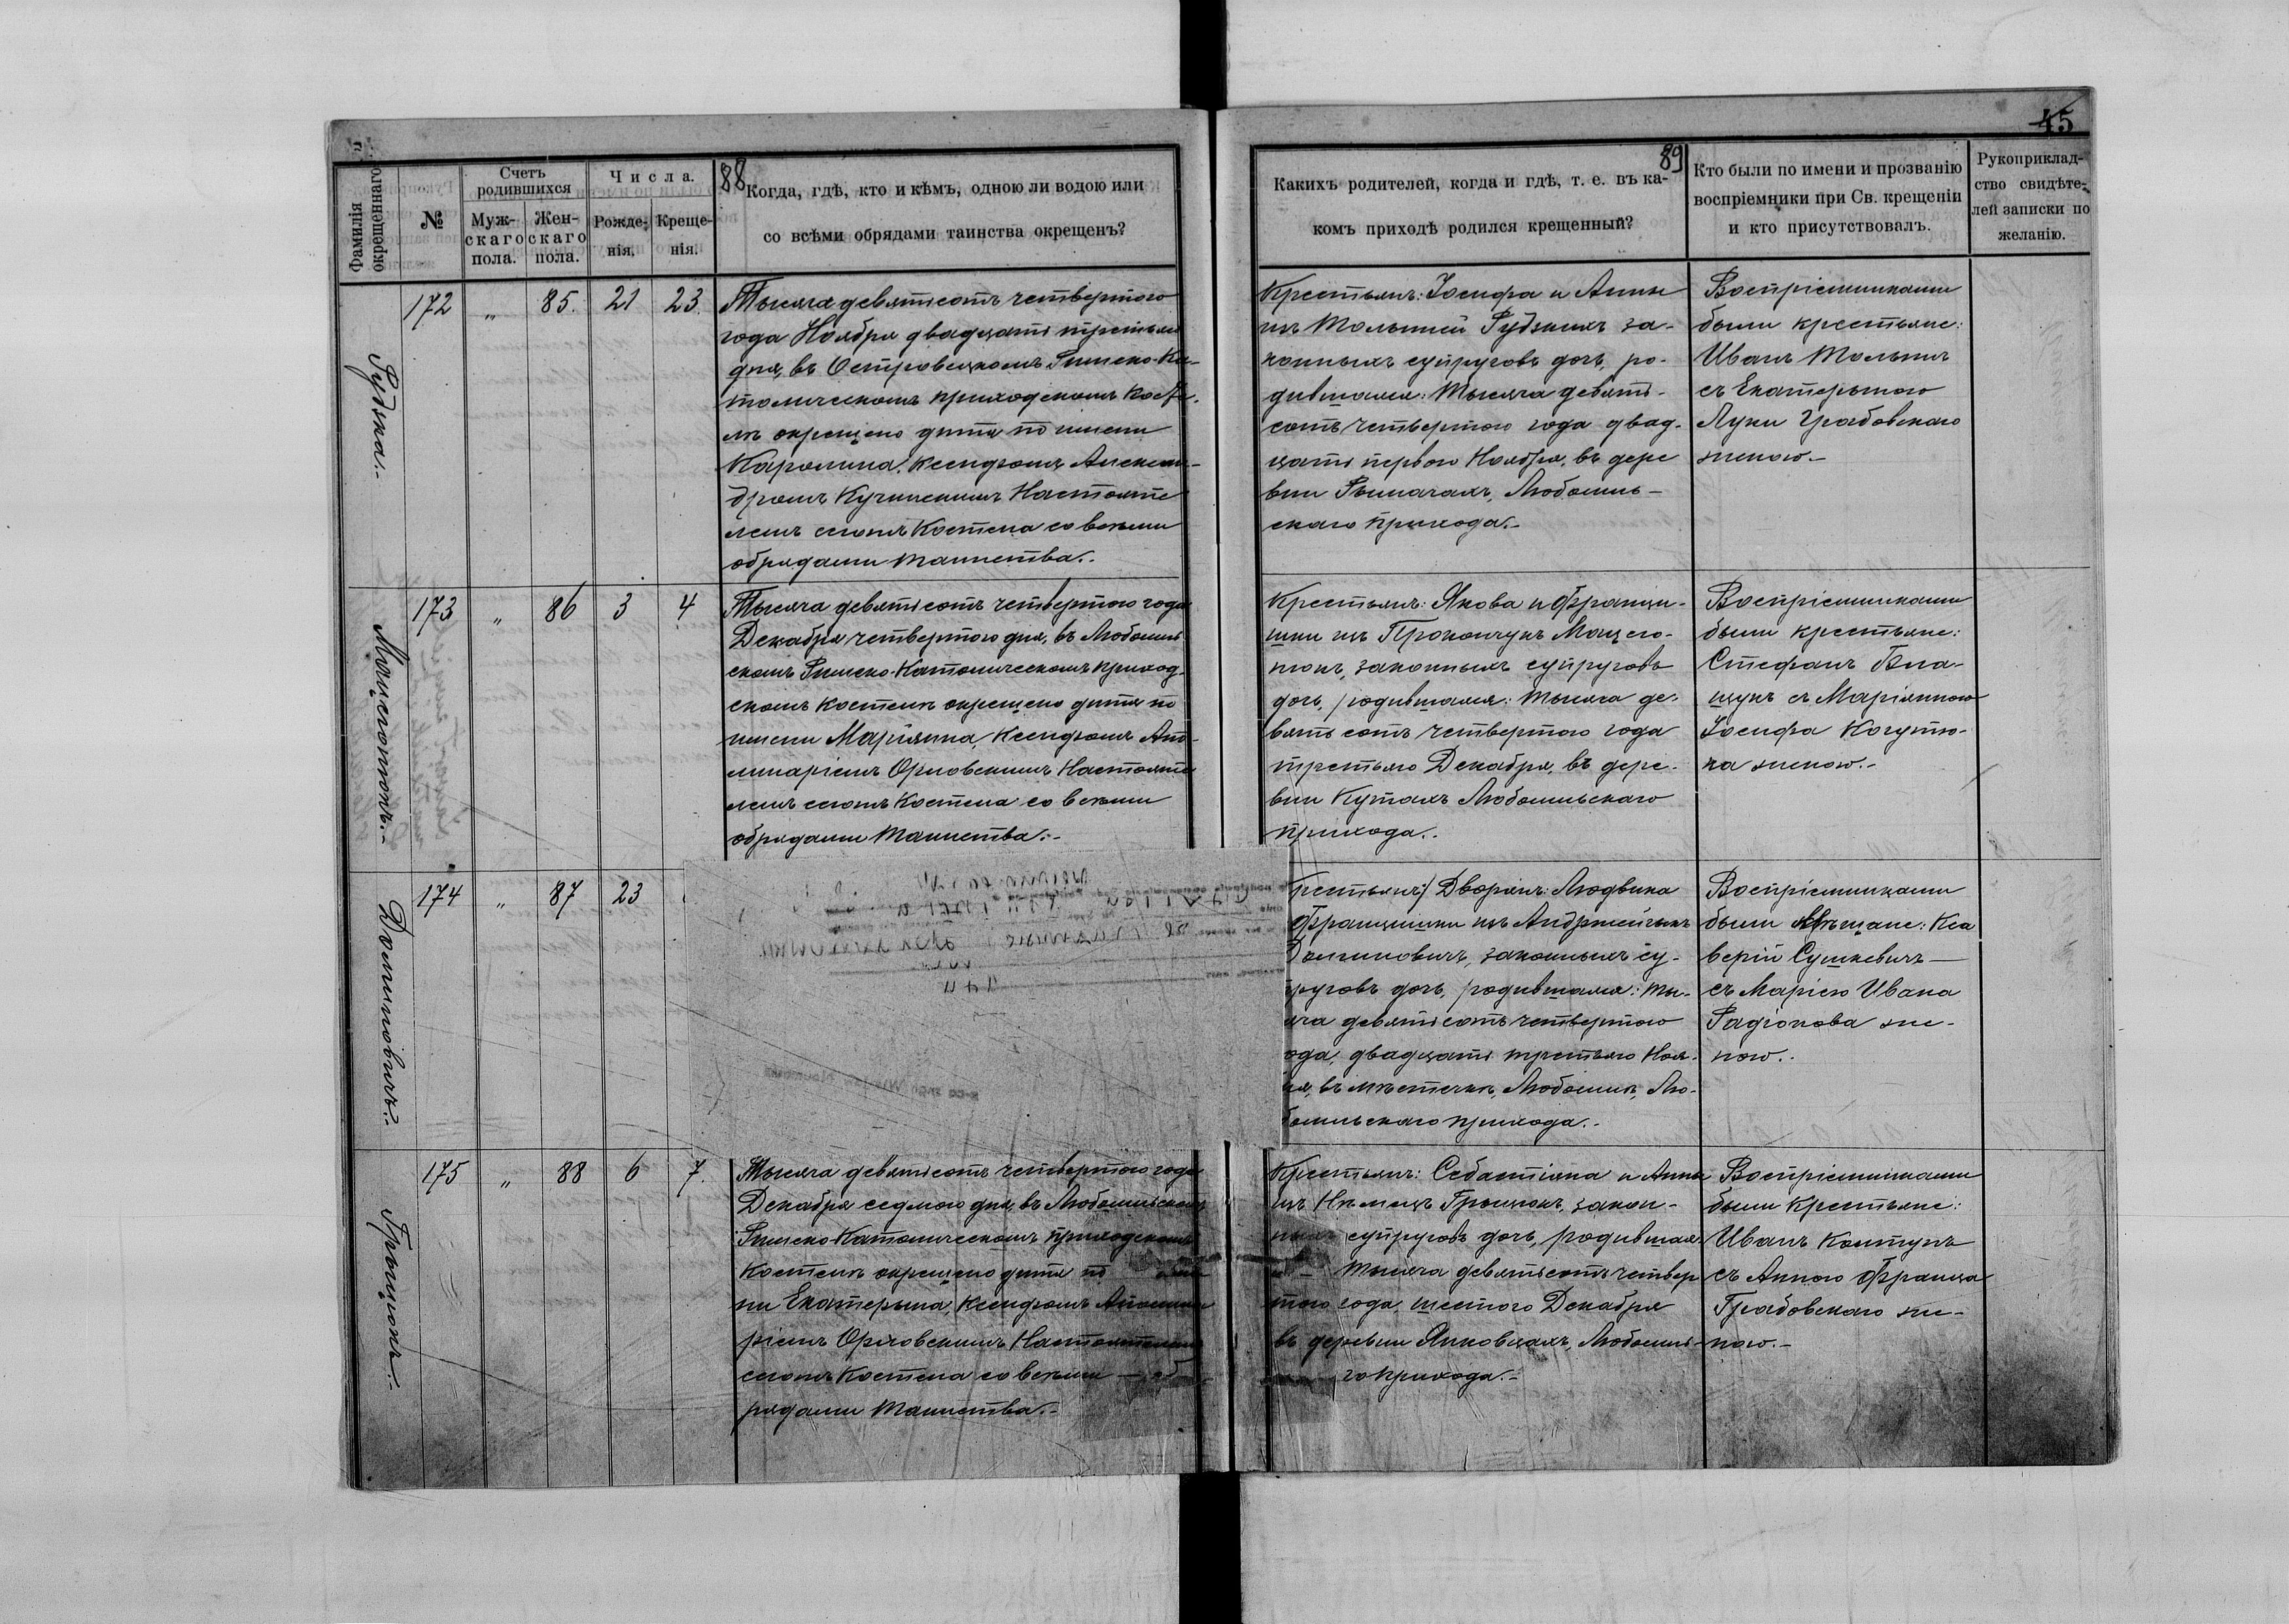 45
88
89
Фамилія окрещеннаго
№
Счетъ родившихся
Муж-
скаго
пола.
Жен-
скаго
пола.
Числа.
Рожде-
нія.
Креще-
нія.
Когда, гдѣ, кто и кѣмъ, одною ли водою или
со всѣми обрядами таинства окрещенъ?
Какихъ родителей, когда и гдѣ, т. е. въ ка-
комъ приходѣ родился крещенный?
Кто были по имени и прозванію
воспріемники при Св. крещеніи
и кто присутствовалъ.
Рукоприклад-
ство свидѣте-
лей записки по
желанію.
Рудзка.-
172 „ 85. 21 23.
Тысяча девятьсотъ четвертого
года Ноября двадцать третьяго
дня, въ Островецкомъ Римско-Ка-
толическомъ приходскомъ Косте-
лѣ окрещено дитя по имени
Каролина. Ксендзомъ Алексан-
дромъ Кучинскимъ Настояте
лемъ сегожъ Костела со всѣми
обрядами таинства.-
Крестьянъ: Іосифа и Анны
изъ Рудзкихъ за-
конныхъ супруговъ дочь, ро-
дившаяся: Тысяча девять-
сотъ четвертого года двад-
цать первого Ноября, въ дере
вни Рымачахъ, Любомль-
скаго прихода.-
Воспріемниками
были крестьяне:
Иванъ
съ Екатериною
Луки Грабовскаго
женою.-
Мацегонюкъ.-
173 „ 86 3 4
Тысяча девятьсотъ четвертого года
Декабря четвертого дня, въ Любомль
скомъ Римско-Католическомъ приход-
скомъ костелѣ окрещено дитя по
имени Маріянна, Ксендзомъ Апо-
линаріемъ Орловскимъ Настояте
лемъ сегожъ Костела со всѣми
обрядами таинства.-
Крестьянъ: Якова и Францы-
шки изъ Прокопчукъ Мацего-
нюкъ, законныхъ супруговъ
дочь, родившаяся: тысяча де-
вятьсотъ четвертого года
третьяго Декабря, въ дере-
вни Кутахъ Любомльскаго
прихода.-
Воспріемниками
были крестьяне:
Стефанъ
съ Маріянною
Іосифа Когутю-
ка женою.-
Долмновичъ.-
174 „ 87 23
Дворянъ: Людвика
Францишки изъ Андржейчыкъ
законныхъ су-
пруговъ дочь, родившаяся: ты-
яча девятьсотъ четвертого
ода, двадцать третьяго Ноя-
ря, въ мѣстечкѣ, Любомлѣ, Лю-
бомльскаго прихода.-
Воспріемниками
были Мѣщане: Кса
верій Сушкевичъ
съ Маріею Ивана
Радіонова же-
ною.-
Грыцюкъ.-
175 „ 88 6 7.
Тысяча девятьсотъ четвертого года
Декабря седмого дня, въ Любомльскомъ
Римско-Католическомъ приходскомъ
Костелѣ окрещено дитя по
ни Екатерына, Ксендзомъ Аполина
ріемъ Орловскимъ Настоятелемъ
сегожъ Костела со всѣми об
рядами таинства.-
Крестьянъ: Себастіяна и Анны
изъ Нѣмецъ Грыцюкъ, закон-
ныхъ супруговъ дочь, родившая
тысяча девятьсотъ четвер
того года, шестого Декабря
въ деревни Янковцахъ, Любомль-
го прихода.-
Воспріемниками
были Крестьяне:
Иванъ Колтунъ
съ Анною Франца
Грабовскаго же-
ною.-